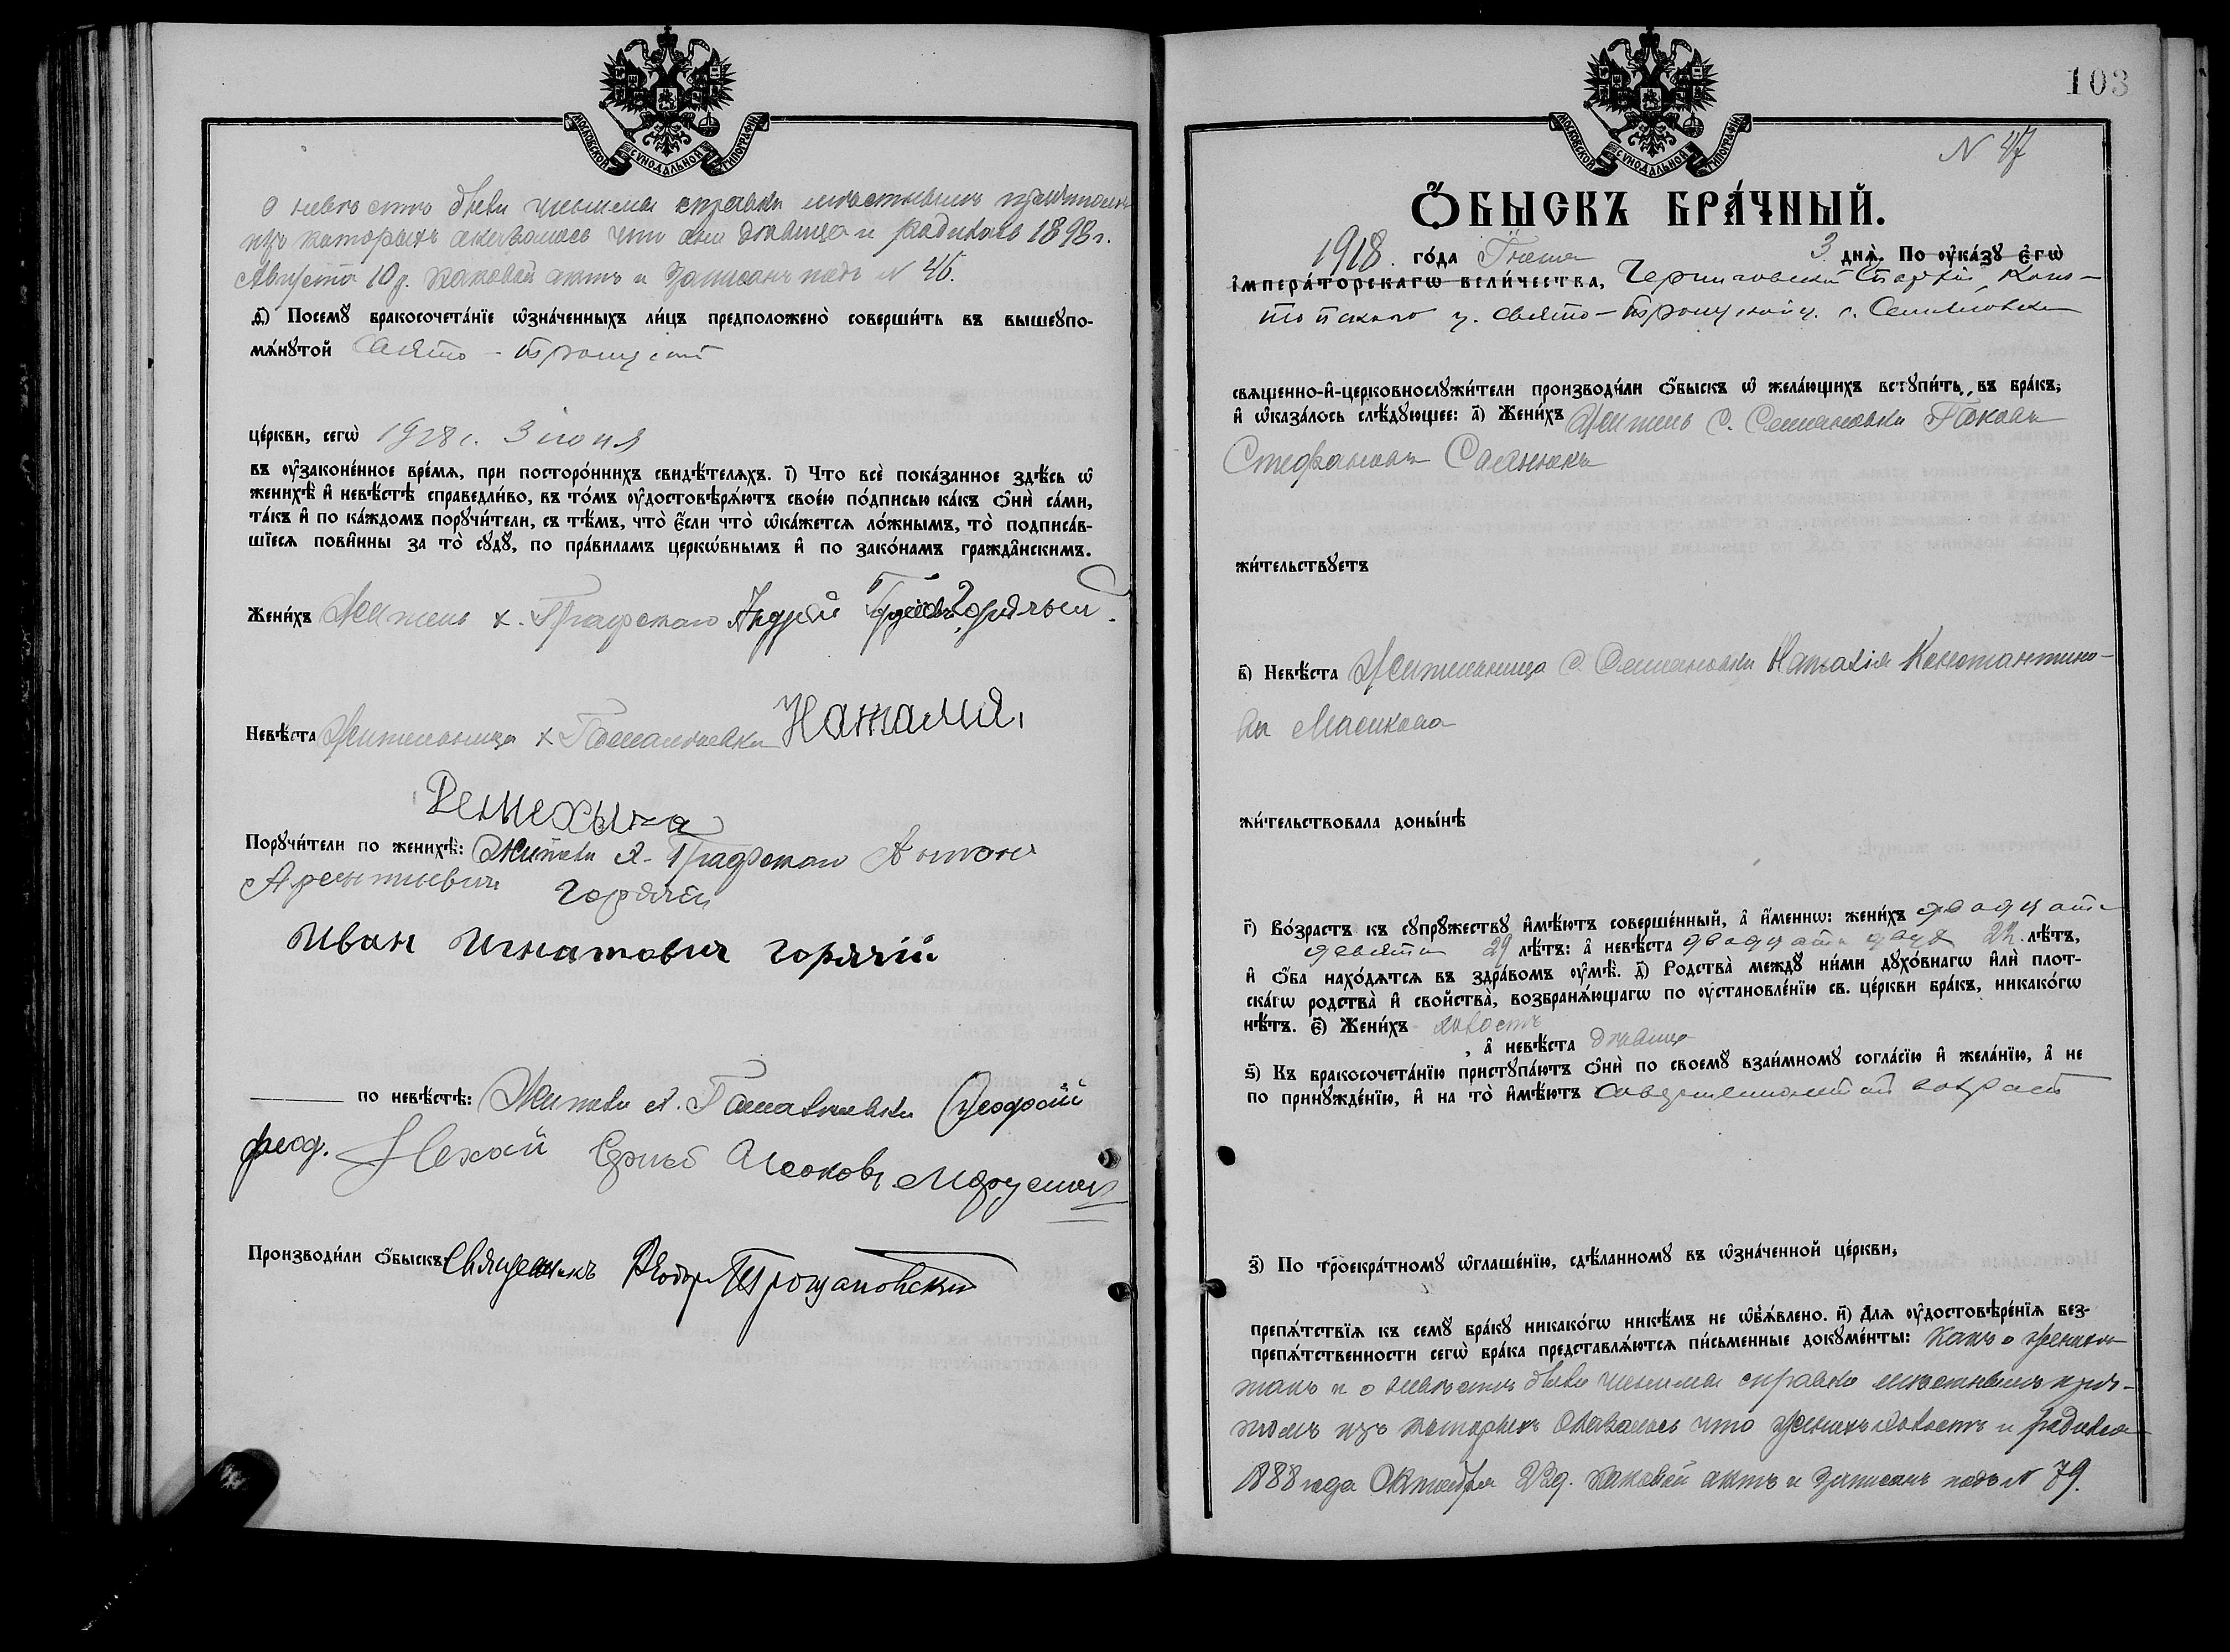 МОСКОВСКОЙ СѴНОДАЛЬНОЙ ТИПОГРАФІИ
о невѣстѣ были чинимы справки мѣстнымъ причтомъ
изъ которыхъ оказалось что она дѣвица и родилась 1898 г.
Августа 10 д. каковой актъ и записанъ подъ N 46.
ѳ҃) Посемꙋ̀ бракосочета́нїе ѡ҆зна́ченныхъ ли́цъ предположено̀ соверши́ть въ вышеупо-
мѧ́нꙋтой Свято-Троицкой
це́ркви, сегѡ̀ 1918 г. 3 іюня
въ ᲂу҆законе́нное вре́мѧ, при посторо́ннихъ свидѣ́телѧхъ. і҃) Что всѐ пока́занное здѣ́сь ѡ҆
женихѣ̀ и҆ невѣ́стѣ справедли́во, въ то́мъ ᲂу҆достовѣрѧ́ютъ свое́ю по́дписью ка́къ ѻ҆нѝ са́ми,
та́къ и҆ по ка́ждомъ порꙋчи́тели, съ тѣ́мъ, что̀ є҆́сли что̀ ѡ҆ка́жетсѧ ло́жнымъ, то̀ подписа́в-
шїесѧ пови́нны за то̀ сꙋдꙋ̀, по пра́виламъ церко́внымъ и҆ по зако́намъ гражда́нскимъ.
Жени́хъ Житель х. Графскаго Андрей Горячый
Невѣ́ста Жительница х Наталия
Демехына
Порꙋчи́тели по женихѣ̀: Житель х. Графскаго Антонъ
Арсентиевич Горячий
Иван Игнатович Горячій
по невѣ́стѣ: Жители х.
феод. Нехай
Производи́ли ѻ҆́быскъ Священникъ Ѳеодоръ Трошановский
МОСКОВСКОЙ СѴНОДАЛЬНОЙ ТИПОГРАФІИ
103
N 47
Ѻ҆́БЫСКЪ БРА́ЧНЫЙ.
1918. го́да Іюня 3 днѧ̀. По ᲂу҆ка́зꙋ Є҆гѡ̀
І҆мпера́торскагѡ вели́чества, Черниговской Епархіи Коно-
топскаго у. Свято-Троицкой ц. с. Семяновки
свѧще́нно-и҆-церковнослꙋжи́тели производи́ли ѻ҆́быскъ ѡ҆ жела́ющихъ встꙋпи́ть въ бра́къ,
и҆ ѡ҆каза́лось слѣ́дꙋющее: а҃) Жени́хъ Житель с. Семяновки Іаковъ
Стефановъ Салнюкъ
жи́тельствꙋетъ
в҃) Невѣ́ста Жительница с. Семяновки Наталія Константино-
ва Масикова
жи́тельствовала доны́нѣ
г҃) Во́зрастъ къ сꙋпрꙋ́жествꙋ и҆мѣ́ютъ соверше́нный, а҆ и҆́меннѡ: жени́хъ двадцати
девяти 29 лѣ́тъ: а҆ невѣ́ста двадцати двухъ 22 лѣ́тъ,
и҆ ѻ҆́ба нахо́дѧтсѧ въ здра́вомъ ᲂу҆мѣ̀. д҃) Родства̀ междꙋ̀ ни́ми дꙋхо́внагѡ и҆лѝ пло́т-
скагѡ родства̀ и҆ свойства̀, возбранѧ́ющагѡ по ᲂу҆становле́нїю св. це́ркви бра́къ, никако́гѡ
нѣ́тъ. є҃) Жени́хъ холостъ
, а҆ невѣ́ста дѣвица
ѕ҃) Къ бракосочета́нїю пристꙋпа́ютъ ѻ҆нѝ по своемꙋ̀ взаи́мномꙋ согла́сїю и҆ жела́нїю, а҆ не
по принꙋжде́нїю, и҆ на то̀ и҆мѣ́ютъ совершеннолѣтній возрастъ
з҃) По троекра́тномꙋ ѡ҆глаше́нїю, сдѣ́ланномꙋ въ ѡ҆зна́ченной це́ркви,
препѧ́тствїѧ къ семꙋ̀ бра́кꙋ никако́гѡ никѣ́мъ не ѡ҆бъѧ́влено. и҃) Длѧ ᲂу҆достовѣре́нїѧ без-
препѧ́тственности сегѡ̀ бра́ка представлѧ́ютсѧ пи́сьменные докꙋме́нты: какъ о женихѣ
такъ и о невѣстѣ были чинимы справки мѣстнымъ прич-
томъ изъ которыхъ оказалось что женихъ холостъ и родился
1888 года Октября 22 д. каковой актъ и записанъ подъ N 79.